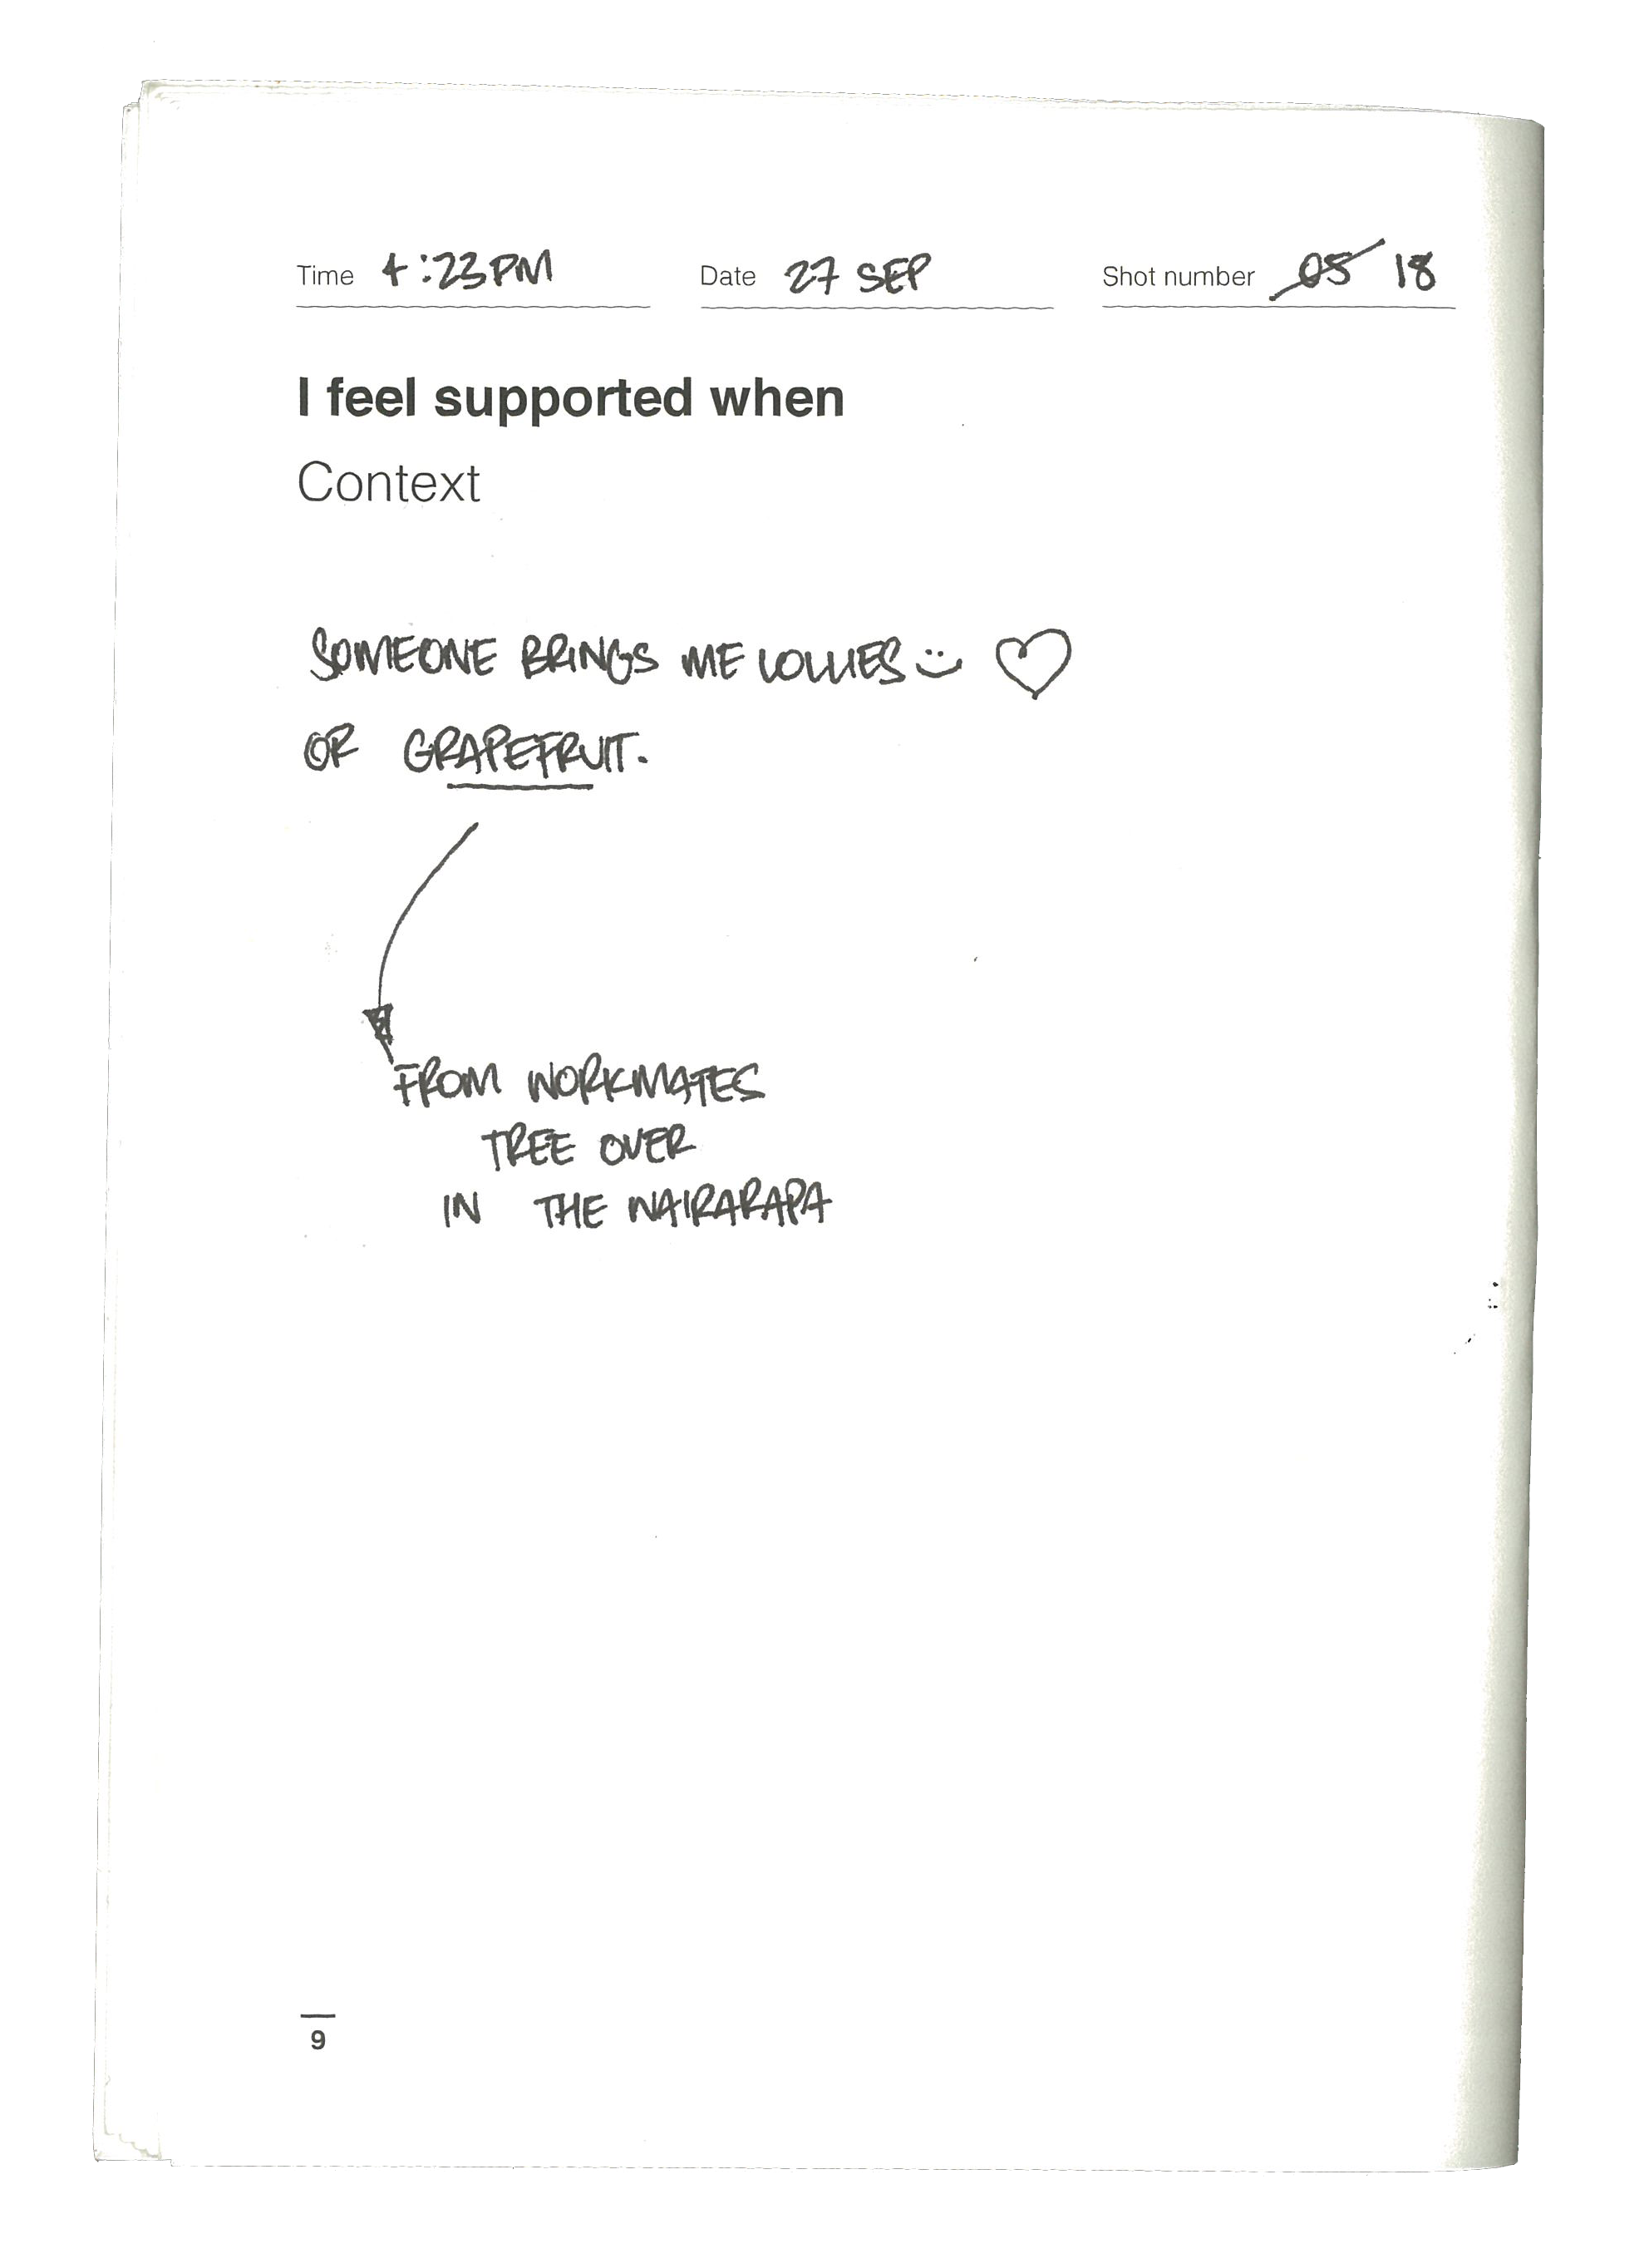 Time 4:23PM Date 27 SEP Shot number 05 18
I feel supported when
Context
SOMEONE BRINGS ME LOLLIES :) ♡
OR GRAPEFRUIT.
FROM WORKMATES
TREE OVER
IN THE WAIRARAPA
9